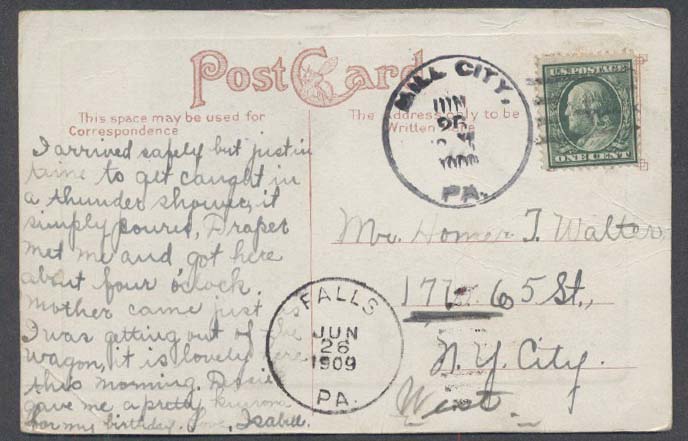 Post Card
This space may be used for
Correspondence
The Address only to be
Written Here
MILL CITY,
JUN
26
PA.
U.S. POSTAGE
ONE CENT
I arrived safely but just in
time to get caught in
a thunder shower, it
simply poured, Draper
met me and got here
about four o'clock.
Mother came just as
I was getting out of the
wagon, it is lovely here
this morning.
gave me a pretty kimona
for my birthday. Love, Isabell.
FALLS
JUN
26
1909
PA.
Mr. Homer T. Walter
65 St.,
N.Y. City.
West